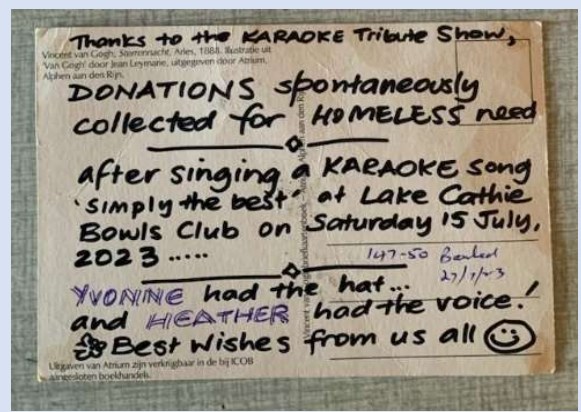 Thanks to the KARAOKE Tribute Show,
Vincent van Gogh, Sterrennacht, Arles, 1888. Illustratie uit
'Van Gogh' door Jean Leymarie, uitgegeven door Atrium,
Alphen aan den Rijn.
DONATIONS spontaneously
collected for HOMELESS need
after singing a KARAOKE song
'simply the best' at Lake Cathie
Bowls Club on Saturday 15 July,
2023 .....
147-50 Banked
27/7/23
YVONNE had the hat...
and HEATHER had the voice!
Best Wishes from us all
Uitgaven van Atrium zijn verkrijgbaar in de bij ICOB
aangesloten boekhandels.
Atrium, Alphen aan den Rijn